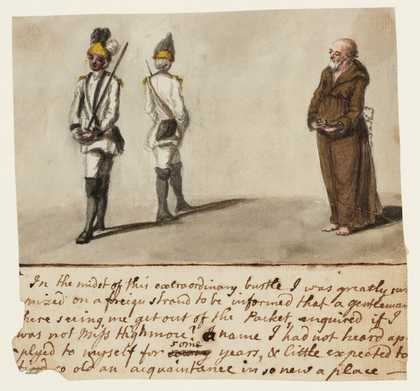 In the midst of this extraordinary bustle I was greatly sur
prized on a foreign strand to be informed that a gentleman
here seeing me get out of the Packet, enquired if I
was not Miss Highmore? a name I had not heard ap
plyed to myself for some years, & little expected to
so old an acquaintance in so new a place —